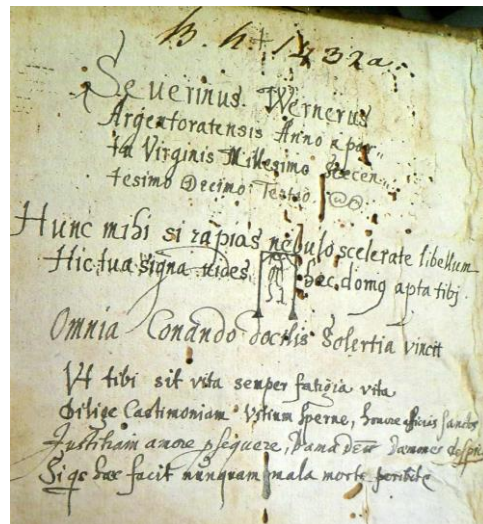 B. h. 1732a.
Severinus Wernerus
Argentoratensis Anno a par„
tu Virginis Millesimo
tesimo Decimo Tertio.
Hunc mihi si rapias nebulo scelerate libellum
Hic tua signa vides, hæc domq apta tibj
Omnia Conando docilis Solertia vincit
Vt tibi sit vita semper vita
Dilige Castimoniam Vitium sperne, honore sanctos
Justitiam amore psequere,
Si qs hæc facit nunquam mala morte peribit